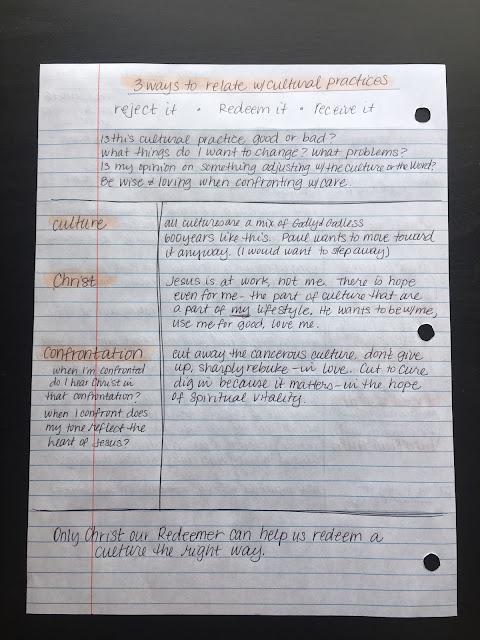 3 ways to relate w/cultural practices
reject it • Redeem it • receive it
Is this cultural practice good or bad?
what things do I want to change? what problems?
Is my opinion on something adjusting w/the culture or the Word?
Be wise & loving when confronting w/care.
culture
all cultures are a mix of Godly & Godless
600 years like this. Paul wants to move toward
it anyway. (I would want to step away)
Christ
Jesus is at work, not me. There is hope
even for me - the part of culture that are
a part of my lifestyle. He wants to be w/me,
use me for good, love me.
confrontation
when I'm confronted
do I hear Christ in
that confrontation?
when I confront does
my tone reflect the
heart of Jesus?
cut away the cancerous culture, don't give
up, sharply rebuke - in love. Cut to Cure
dig in because it matters - in the hope
of spiritual vitality.
Only Christ our Redeemer can help us redeem a
culture the right way.